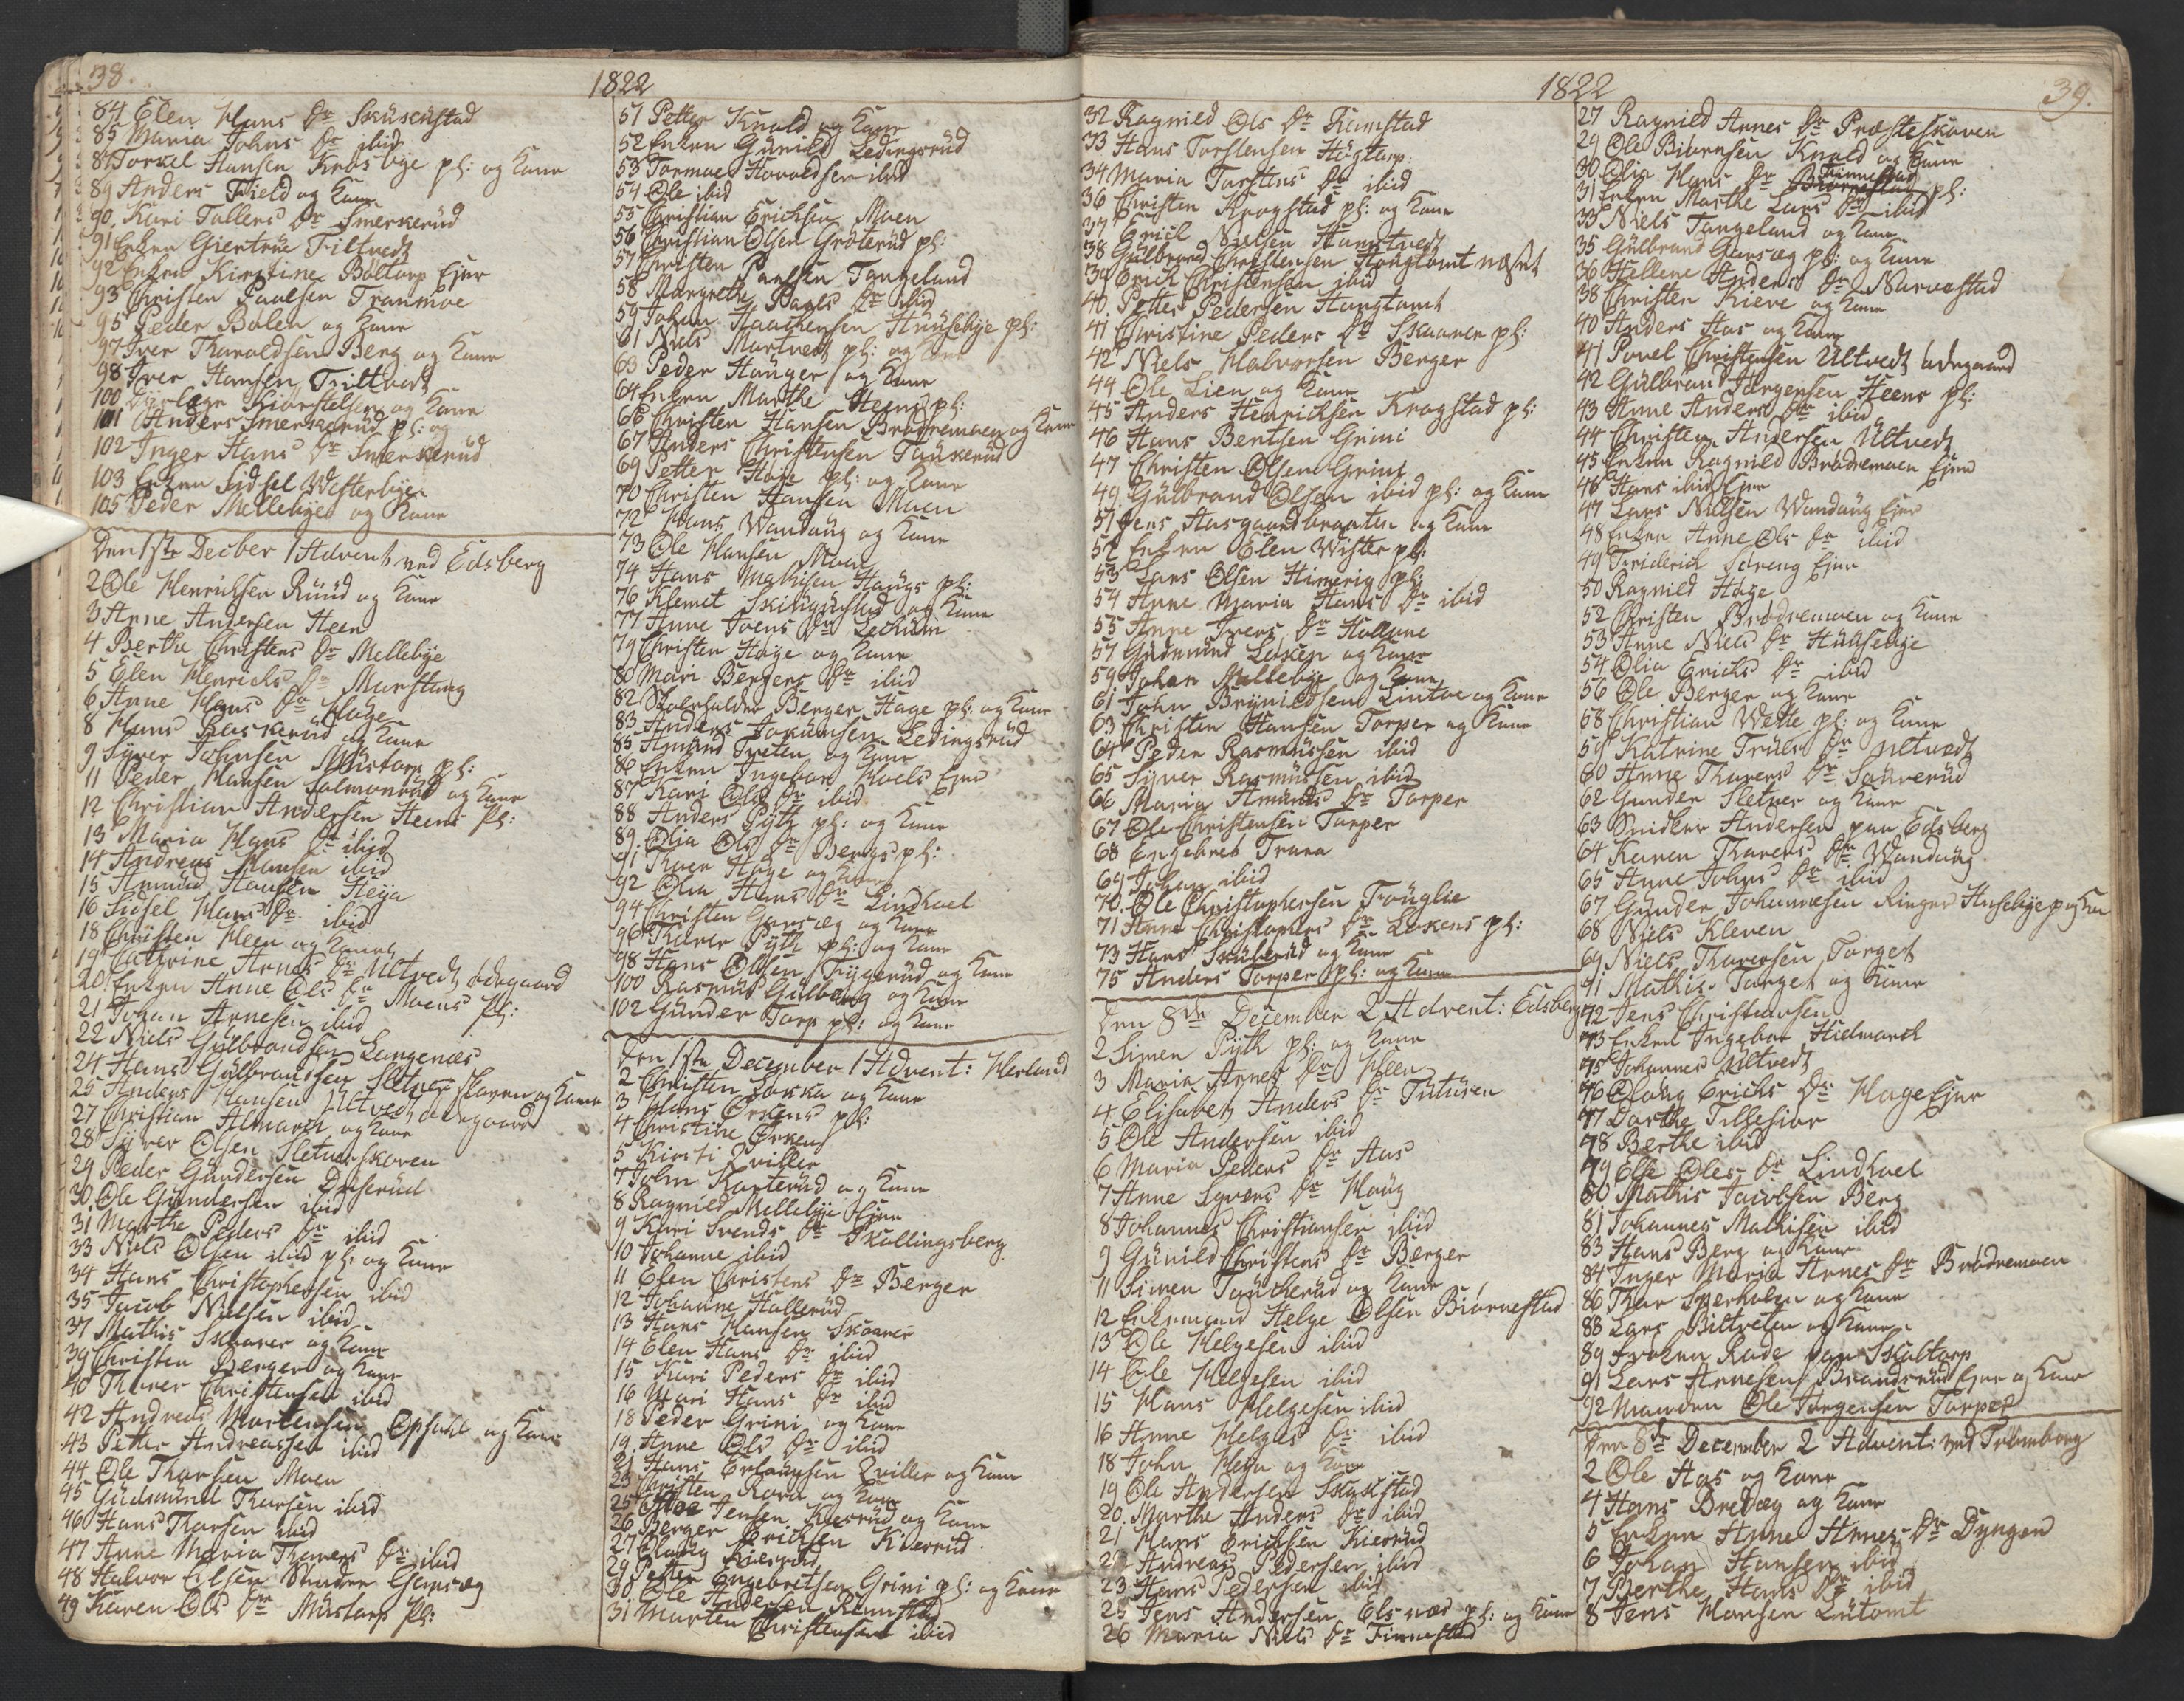 38.
1822
84 Elen Hans Dr Skuscustad
85 Maria Johns Dr ibid
87 Torkel Hansen Krosbye pl: og Kone
89 Anders Field og Kone
90. Kari Tollers Dr Smerkerud
91 Enken Giertrue Tiltvedt
92 Enken Kirstine Boltorp Ejer
93 Christen Paulsen Tranmoe
95 Peder Bolen og Kone
97 Iver Tharaldsen Berg og Kone
98 Iver Hansen Tiltvedt
100 Kierstelsen og Kone
101 Anders Smerkerud pl: og
102 Inger Hans Dr Smerkerud
103 Enken Sidsel Westerbye
105 Peder Mellebye og Kone
Den 1ste Decber 1 Advent ved Edsberg
2 Ole Henrichsen Ruud og Kone
3 Anne Andersen Heen
4 Berthe Christens Dr Mellebye
5 Elen Henrichs Dr Morstang
6 Anne Hans Dr Hage
8 Hans Baskerud og Kone
9 Syver Johnsen Mustorp pl:
11 Peder Hansen Salmonrud og Kone
12 Christian Andersen Heens pl:
13 Maria Hans Dr ibid
14 Andreas Hansen ibid
15 Amund Hansen Heja
16 Sidsel Hans Dr ibid
18 Christen Heen og Kone
19 Cathrine Arnes Dr Ultvedt ødegaard
20 Enken Anne Ols Dr Moens pl:
21 Johan Arnesen ibid
22 Niels Gulbrandsen Langenæs
24 Hans Gulbrandsen Sletnerskoven og Kone
25 Anders Hansen Ultvedt ødegaard
27 Christian Almarch og Kone
28 Syver Olsen Sletnerskoven
29 Peder Gundersen Druserud
30. Ole Gundersen ibid
31 Marthe Peders Dr ibid
33 Niels Olsen ibid pl: og Kone
34 Hans Christophersen ibid
35 Jacob Nielsen ibid
37 Mathis Skaarer og Kone
39 Christen Berger og Kone
40 Thorer Christensen ibid
42 Andreas Mortensen Opsahl og Kone
43 Petter Andreassen ibid
44 Ole Thorsen Moen
45 Gudmund Thorsen ibid
46 Hans Thorsen ibid
47 Anne Maria Thorers Dr ibid
48 Halvor Olsen Gansæg
49 Karen Ols Dr Mustorp pl:
51 Petter Knold og Kone
52 Enken Gunild Ledingsrud
53 Tormoe Havoldsen ibid
54 Ole ibid
55 Christian Erichsen Moen
56 Christian Olsen Grøterud pl:
57 Christen Paulsen Tangeland
58 Margrethe Pauls Dr ibid
59 Johan Haachensen Huusebye pl:
61 Niels Mortvedt pl: og Kone
63 Peder Hauger og Kone
64 Enken Marthe Heens pl:
66 Christen Hansen Brødremoen og Kone
67 Anders Christensen Tauserud
69 Petter Hage pl: og Kone
70 Christen Hansen Moen
72 Hans Wandaug og Kone
73 Ole Hansen Moen
74 Hans Mathisen Haugs pl:
76 Klemet og Kone
77 Anne Joens Dr Lechum
79 Christen Hage og Kone
80 Mari Bergers Dr ibid
82 Skoleholder Berger Hage pl: og Kone
83 Anders Joramsen Ledingsrud
85 Amund Treten og Kone
86 Enken Ingebor Hoels Ejer
87 Kari Ols Dr ibid
88 Anders Pyth pl: og Kone
89. Olia Ols Dr Bergs pl:
91 Thorer Hage og Kone
92 Olia Hans Dr Lindhoel
94 Christen Gansæg og Kone
96 Thorer Pyth pl: og Kone
98 Hans Olsen Frygerud og Kone
100 Rasmus Gulbrang og Kone
102 Gunder Torp pl: og Kone
Den 1ste December 1 Advent: Herland
2 Christen Løkka og Kone
3 Hans Ørkens pl:
4 Christine Ørkens
5 Kirsti Qviller
7 John Korterud og Kone
8 Ragnild Mellebye Ejer
9 Kari Svends Dr Skallingsberg
10 Johanne ibid
11 Elen Christens Dr Berger
12 Johanne Hallerud
13 Hans Hansen Skaarer
14 Elen Hans Dr ibid
15 Kari Peders Dr ibid
16 Mari Hans Dr ibid
18 Peder Grini og Kone
19. Anne Ols Dr ibid
21 Hans Erlandsen Qviller og Kone
23 Christen Kora og Kone
25 Jensen Kierrud og Kone
26 Berger Erichsen Kierrud
27 Olaug Kierrud
29 Petter Engebretsen Grini pl: og Kone
30 Ole Andersen Ramstad
31 Morten Christensen ibid
1822
39.
32 Ragnild Ols Dr Ramstad
33 Hans Torstensen Høgtorp
34 Maria Torstens Dr ibid
36 Christen Krogstad pl: og Kone
37 Erich Nielsen Hamtvedt
38 Gulbrand Christensen Haugtomt næset
39 Erich Christensen ibid
40. Petter Pedersen Haugtomt
41 Christine Peders Dr Skaarer pl:
42 Niels Halvorsen Berger
44 Ole Lien og Kone
45 Anders Henrichsen Krogstad pl:
46 Hans Bentsen Grini
47 Christen Olsen Grini
49 Gulbrand Olsen ibid pl: og Kone
51 Jens Aasgaardbraaten og Kone
52 Enken Elen Wister pl:
53 Lars Olsen Himerig pl:
54 Anne Maria Hans Dr ibid
55 Anne Ivers Dr Hollene
57 Gudmund Løken og Kone
59 Johan Mellebye og Kone
61 John Brynildsen Lintoe og Kone
63 Christen Hansen Torper og Kone
64 Peder Rasmussen ibid
65 Syver Rasmussen ibid
66 Maria Amunds Dr Torper
67 Ole Christensen Torper
68 Engebret Trara
69 Johan ibid
70. Ole Christophersen Frøuglie
71 Anne Christophers Dr Løkens pl:
73 Hans Skuberud og Kone
75 Anders Torper pl: og Kone
Den 8de December 2 Advent: Edsberg
2 Simen Pyth pl: og Kone
3 Maria Arnes Dr Heen
4. Elisabet Anders Dr Tuturen
5 Ole Andersen ibid
6 Maria Peders Dr Aas
7 Anne Syvers Dr Haug
8 Johannes Christiansen ibid
9 Gunild Christens Dr Berger
11 Simen Taucherud og Kone
12 Enkemand Helge Olsen Biørnestad
13 Ole Helgesen ibid
14 Ole Helgesen ibid
15 Hans Helgesen ibid
16 Anne Helges Dr ibid
18 John Heja og Kone
19 Ole Andersen Skukstad
20. Marthe Anders Dr ibid
21 Hans Erichsen Kierrud
22 Andreas Pedersen ibid
23 Hans Pedersen ibid
25 Jens Andersen Elsnæs pl: og Kone
26 Maria Niels Dr Finnestad
27 Ragnild Arnes Dr Præsteskoven
29 Ole Biørnsen Knold og Kone
30 Olia Hans Dr Finnestad
31 Enken Marthe Lars Dr ibid pl:
33 Niels Tangeland og Kone
35 Gulbrand Gansæg pl: og Kone
36 Hellene Anders Dr Narvestad
38 Christen Kieve og Kone
40 Anders Aas og Kone
41 Povel Christensen Ultvedt ødegaard
42 Gulbran Jørgensen Heens pl:
43 Anne Anders Dr ibid
44 Christen Andersen Ultvedt
45 Enken Ragnild Brødremoen Ejer
46 Hans ibid Ejer
47 Lars Nielsen Wandaug Ejer
48 Enken Anne Ols Dr ibid
49 Friderich Ejer
50 Ragnild Hage
52 Christen Brødremoen og Kone
53 Anne Niels Dr Huusebye
54 Olia Erichs Dr ibid
56 Ole Berger og Kone
68 Christian Weste pl: og Kone
59 Katrine Truls Dr Ultvedt
60 Anne Thorers Dr Saxverud
62 Gunder Sletner og Kone
63 Snidker Andersen paa Edsberg
64 Karen Thorers Dr Wandaug
65 Anne Johns Dr ibid
67 Gunder Johannesen Ringer Husebye pl og Kone
68 Niels Kleven
69 Niels Thoresen Torget
71 Mathis Torget og Kone
72 Jens Christiansen
73 Enken Ingebor Hidmarch
75 Johannes Ultvedt
76 Olaug Erichs Dr Hage Ejer
77 Dorthe Tillesior
78 Berthe ibid
79 Else Oles Dr Lindhoel
80 Mathis Jacobsen Berg
81 Johannes Mathisen ibid
83 Hans Berg og Kone
84 Inger Maria Arnes Dr Brødremoen
86 Thor og Kone
88 Lars Bittreten og Kone
89 Frøken Rode paa Skaltorp
91 Lars Arnesen Brandsrud Ejer og Kone
92 Ole Jørgensen Torper
Den 8de December 2 Advent: ved Trømborg
2 Ole Aas og Kone
4 Hans Bredæg og Kone
5 Enken Anne Arnes Dr Dyngen
6 Johan Hansen ibid
7 Berthe Hans Dr ibid
8 Jens Hansen Lutomt